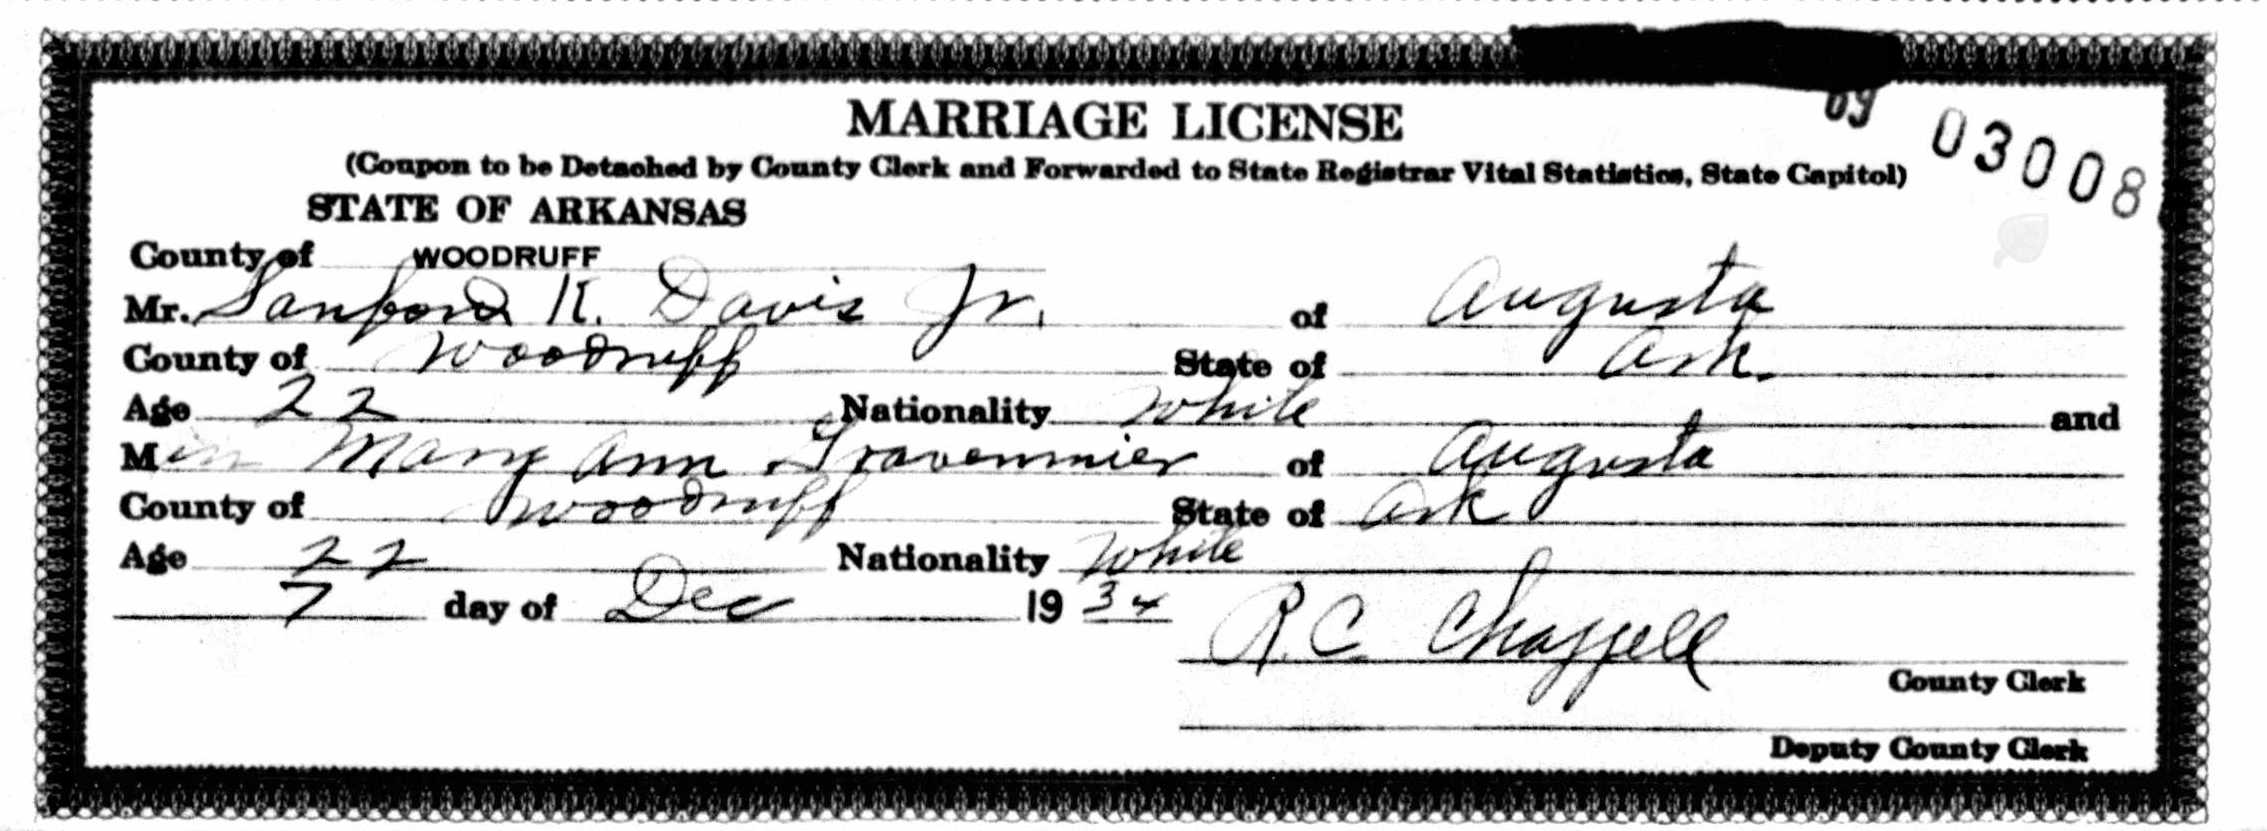 69 03008
MARRIAGE LICENSE
(Coupon to be Detached by County Clerk and Forwarded to State Registrar Vital Statistics, State Capitol)
STATE OF ARKANSAS
County of WOODRUFF
Mr. Sanford K. Davis Jr. of Augusta
County of Woodruff State of Ark.
Age 22 Nationality White and
Miss Mary Ann Gravenmier of Augusta
County of Woodruff State of Ark
Age 22 Nationality White
7 day of Dec 1934
R. C. Chappell
County Clerk
Deputy County Clerk